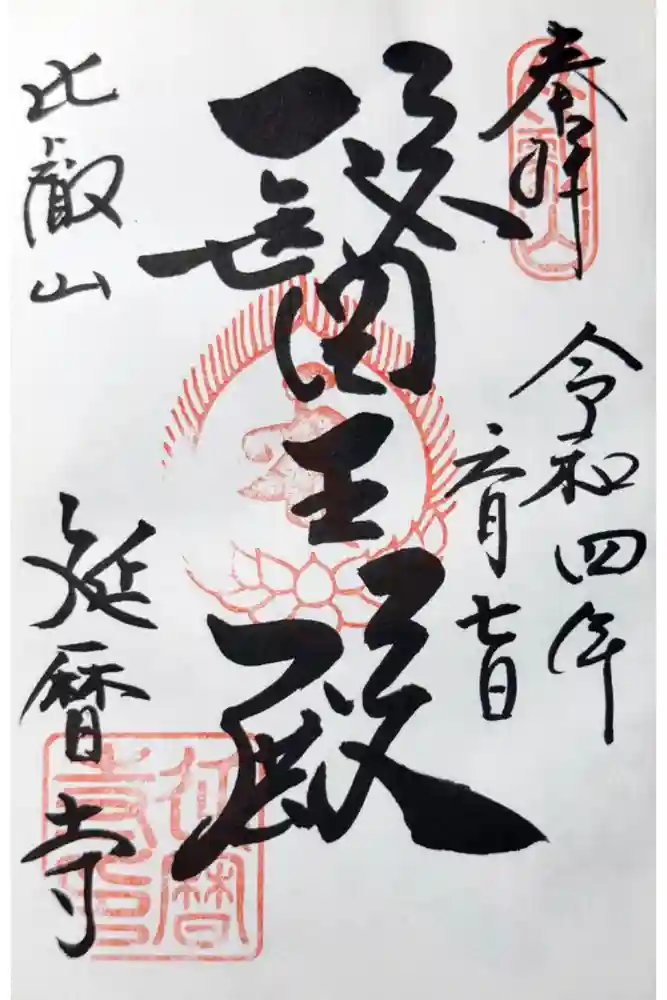 奉拝
令和四年
六月七日
醫王殿
比叡山
延暦寺
延暦
寺印